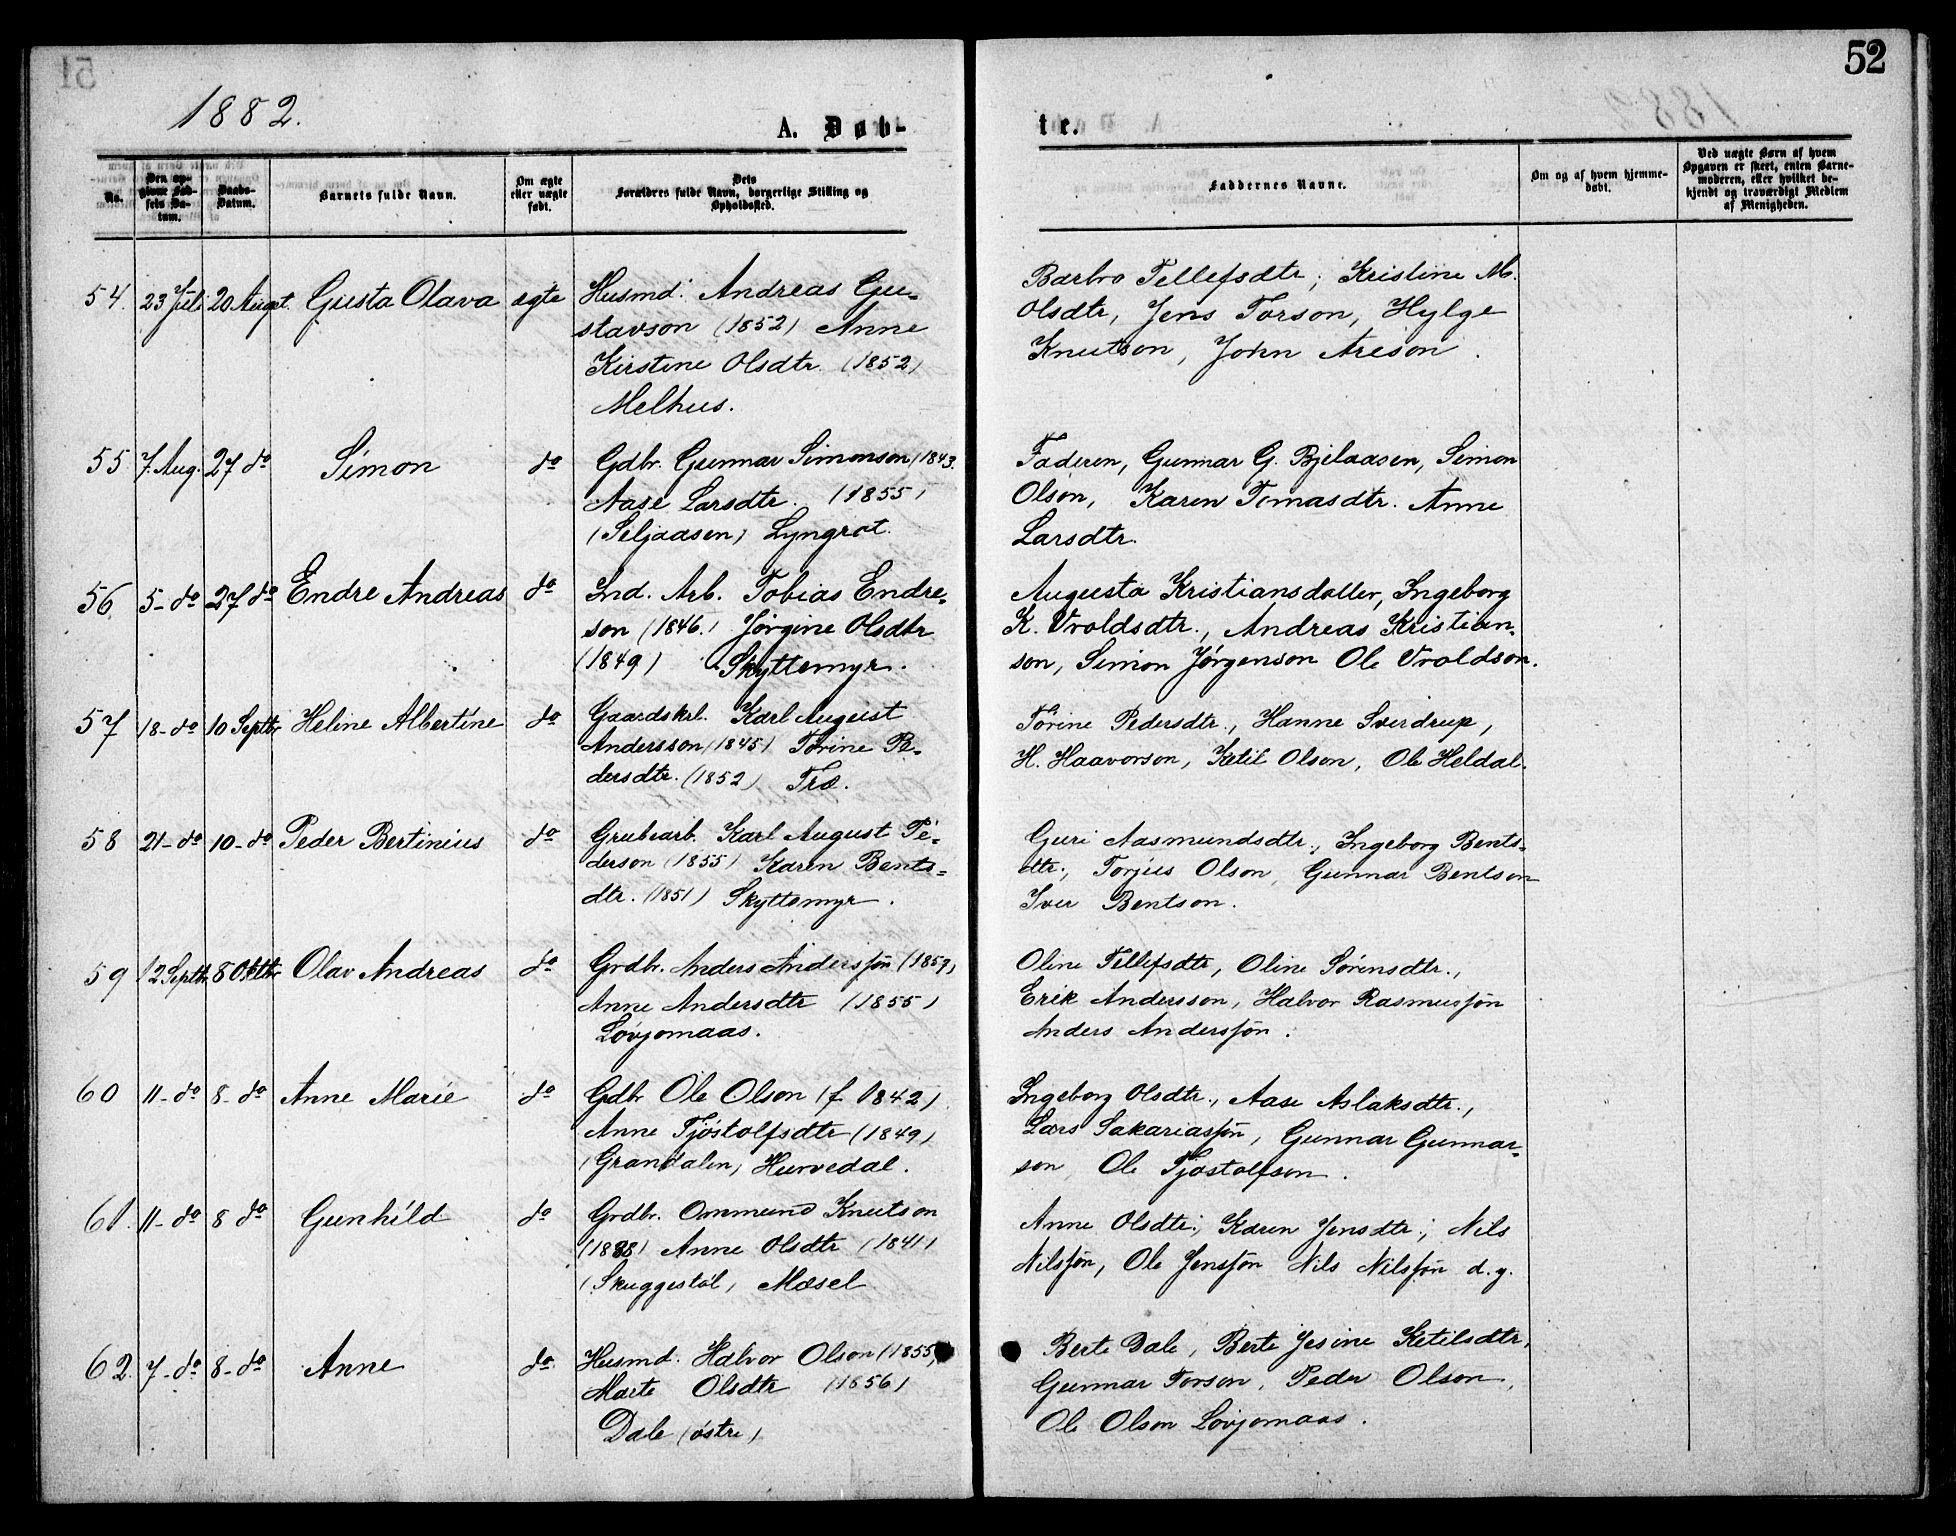 52
1882.
A. Døb-
te.
No.
Den op-
givne Fød-
sels Da-
tum.
Daabs-
Datum.
Barnets fulde Navn.
Om ægte
eller uægte
født.
Dets
Forældres fulde Navn, borgerlige Stilling og
Opholdssted.
Faddernes Navne.
Om og af hvem hjemme-
døbt.
Ved uægte Børn af hvem
Opgaven er skeet, enten Barne-
moderen, eller hvilket be-
kjendt og troværdigt Medlem
af Menigheden.
54. 23 Juli 20 August. Gusta Olava ægte
Husmd. Andreas Gu-
stavson (1852) Anne
Kirstine Olsdtr. (1852)
Melhus.
Barbro Tellefsdtr, Kristine M.
Olsdtr, Jens Torson, Hylge
Knutson, John Areson.
55 7. Aug. 27 do Simon do
Gdbr. Gunnar Simonson (1843.
Aase Larsdtr. (1855)
(Seljaasen) Lyngrot.
Faderen, Gunnar G. Bjelaasen, Simon
Olson, Karen Tomasdtr. Anne
Larsdtr.
56. 5- do 27 do Endre Andreas do
Ind. Arb. Tobias Endre-
son (1846.) Jørgine Olsdtr
(1849) Skyttemyr.
Augusta Kristiansdatter, Ingeborg
K. Vroldsdtr., Andreas Kristian-
son, Simon Jørgenson Ole Vroldson.
57 18- do 10 Septbr Heline Albertine do
Gaardskrl. Karl August
Andersson (1845) Torine Pe-
dersdtr. (1852) Træ.
Torine Pedersdtr., Hanne Sverdrup,
H. Haavorson, Ketil Olson, Ole Heldal.
58 21- do 10- do Peder Bertinius do
Grubearb. Karl August Pe-
derson (1855) Karen Bents-
dtr. (1851) Skyttemyr.
Guri Aasmundsdtr., Ingeborg Bents-
dtr., Torjus Olson, Gunnar Bentson
Iver Bentson.
59 12 Septbr. 8 Oktbr Olav Andreas do
Grdbr. Anders Andersjøn (1859)
Anne Andersdtr (1855)
Løvjomaas.
Oline Tellefsdtr, Oline Sørensdtr.,
Erik Andersson, Halvor Rasmusjøn
Anders Andersjøn.
60 11- do 8- do Anne Marie do
Gdbr Ole Olson (f 1842)
Anne Tjøstolfsdtr (1849)
(Grandalen) Hurvedal.
Ingeborg Olsdtr., Aase Aslaksdtr.,
Lars Sakariasjøn, Gunnar Gunnar-
son, Ole Tjøstolfson.
61. 11- do 8 do Gunhild do
Grdbr. Ommund Knutson
(1838) Anne Olsdtr (1841)
(Skuggestøl) Mæsel
Anne Olsdtr., Karen Jensdtr., Nils
Nilsjøn, Ole Jensjøn Nils Nilsjøn d.y.
62. 7- do 8- do Anne do.
Husmd. Halvor Olson (1855)
Marte Olsdtr (1856)
Dale (østre)
Berte Dale, Berte Jesine Ketilsdtr,
Gunnar Torson, Peder Olson,
Ole Olson Løvjomaas.